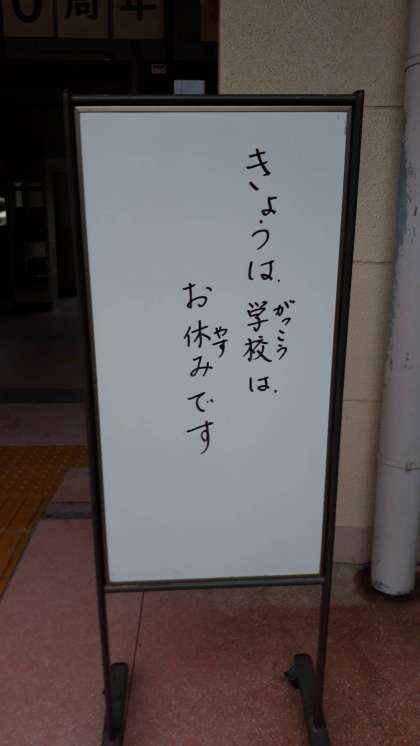 ０周年
きょうは、学校は、
がっこう
お休みです
やす